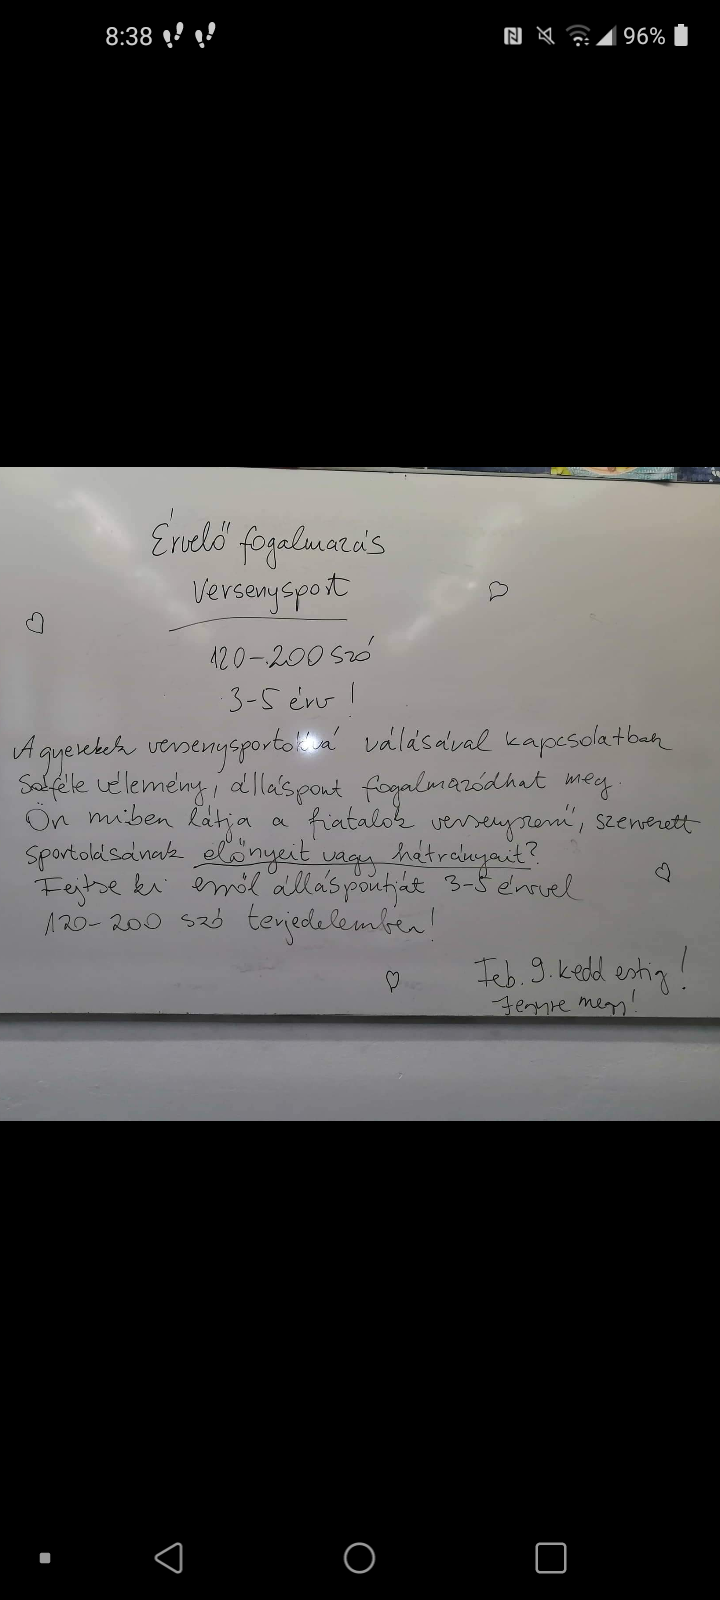 8:38 96%
Érvelő fogalmazás
Versenysport
120-200 szó
3-5 érv!
A gyerekek versenysportolóvá válásával kapcsolatban
sokféle vélemény, álláspont fogalmazódhat meg.
Ön miben látja a fiatalok versenyszerű, szervezett
sportolásának előnyeit vagy hátrányait?
Fejtse ki erről álláspontját 3-5 érvvel
120-200 szó terjedelemben!
Feb. 9. kedd estig!
Jegyre megy!